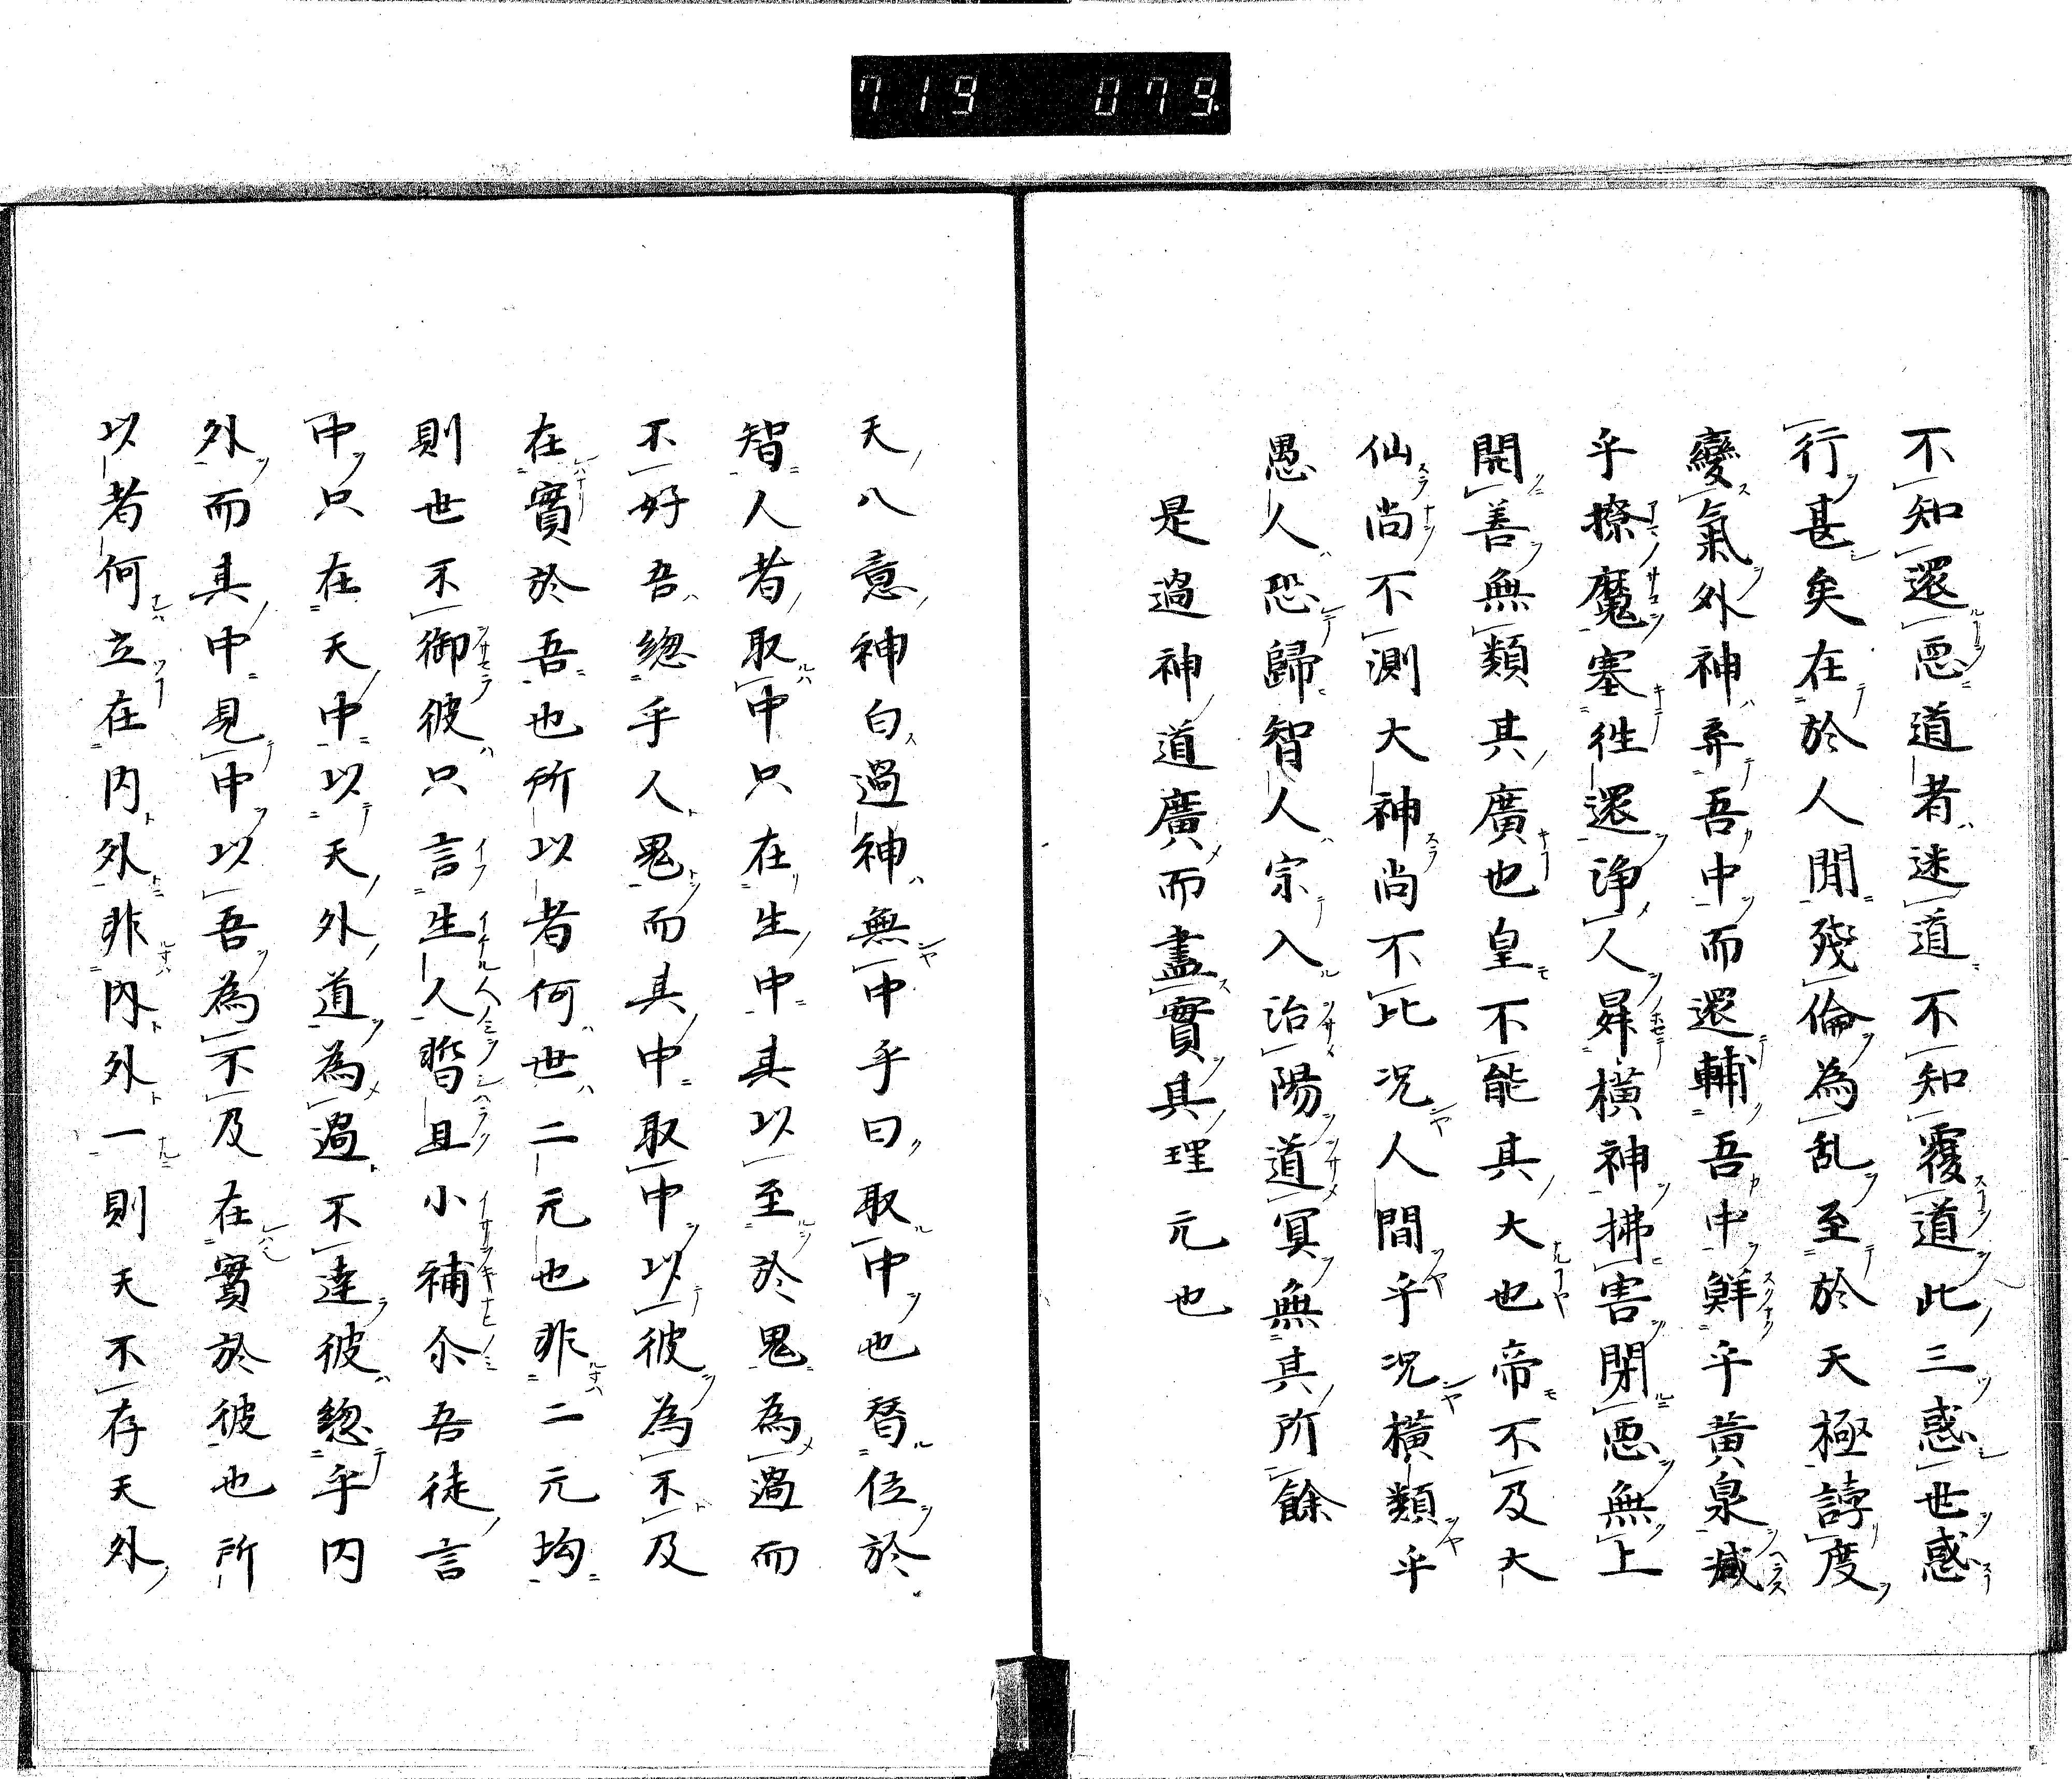 719 079
不知還惡道者迷道不知覆道此三惑世惑
行甚矣在於人間殘倫為乱至於天極誖度
變氣外神弃吾中而還輔吾中鮮乎黄泉減
乎撩魔塞徃還諍人昇橫神拂害閉惡無上
開善無類其廣也皇不能其大也帝不及大
仙尚不測大神尚不比况人間乎况橫類乎
愚人恐歸智人宗入治陽道冥無其所餘
是過神道廣而盡實其理元也
天八意神白過神無中乎曰取中也替位於
智人者取中只在生中其以至於鬼為過而
不好吾總乎人鬼而其中取中以彼為不及
在實於吾也所以者何世二元也非二元均
則世不御彼只言生人暫且小補尒吾徒言
中只在天中以天外道為過不達彼總乎内
外而其中見中以吾為不及在實於彼也所
以者何立在内外非内外一則天不存天外